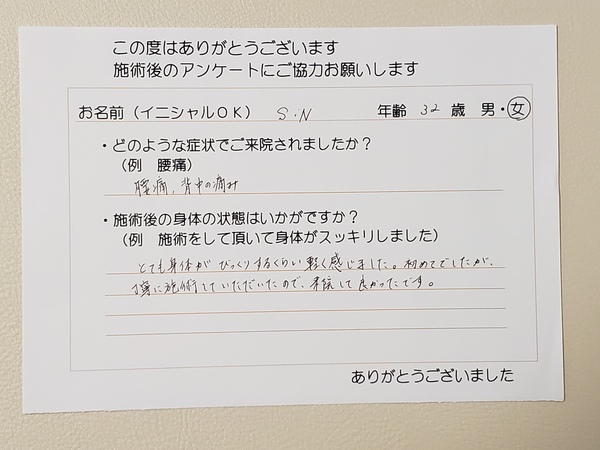 この度はありがとうございます
施術後のアンケートにご協力お願いします
お名前（イニシャルOK） S.N 年齢 32 歳 男・女
・どのような症状でご来院されましたか？
（例 腰痛）
腰痛、背中の痛み
・施術後の身体の状態はいかがですか？
（例 施術をして頂いて身体がスッキリしました）
とても身体がびっくりするくらい軽く感じました。初めてでしたが、
丁寧に施術していただいたので、来院して良かったです。
ありがとうございました